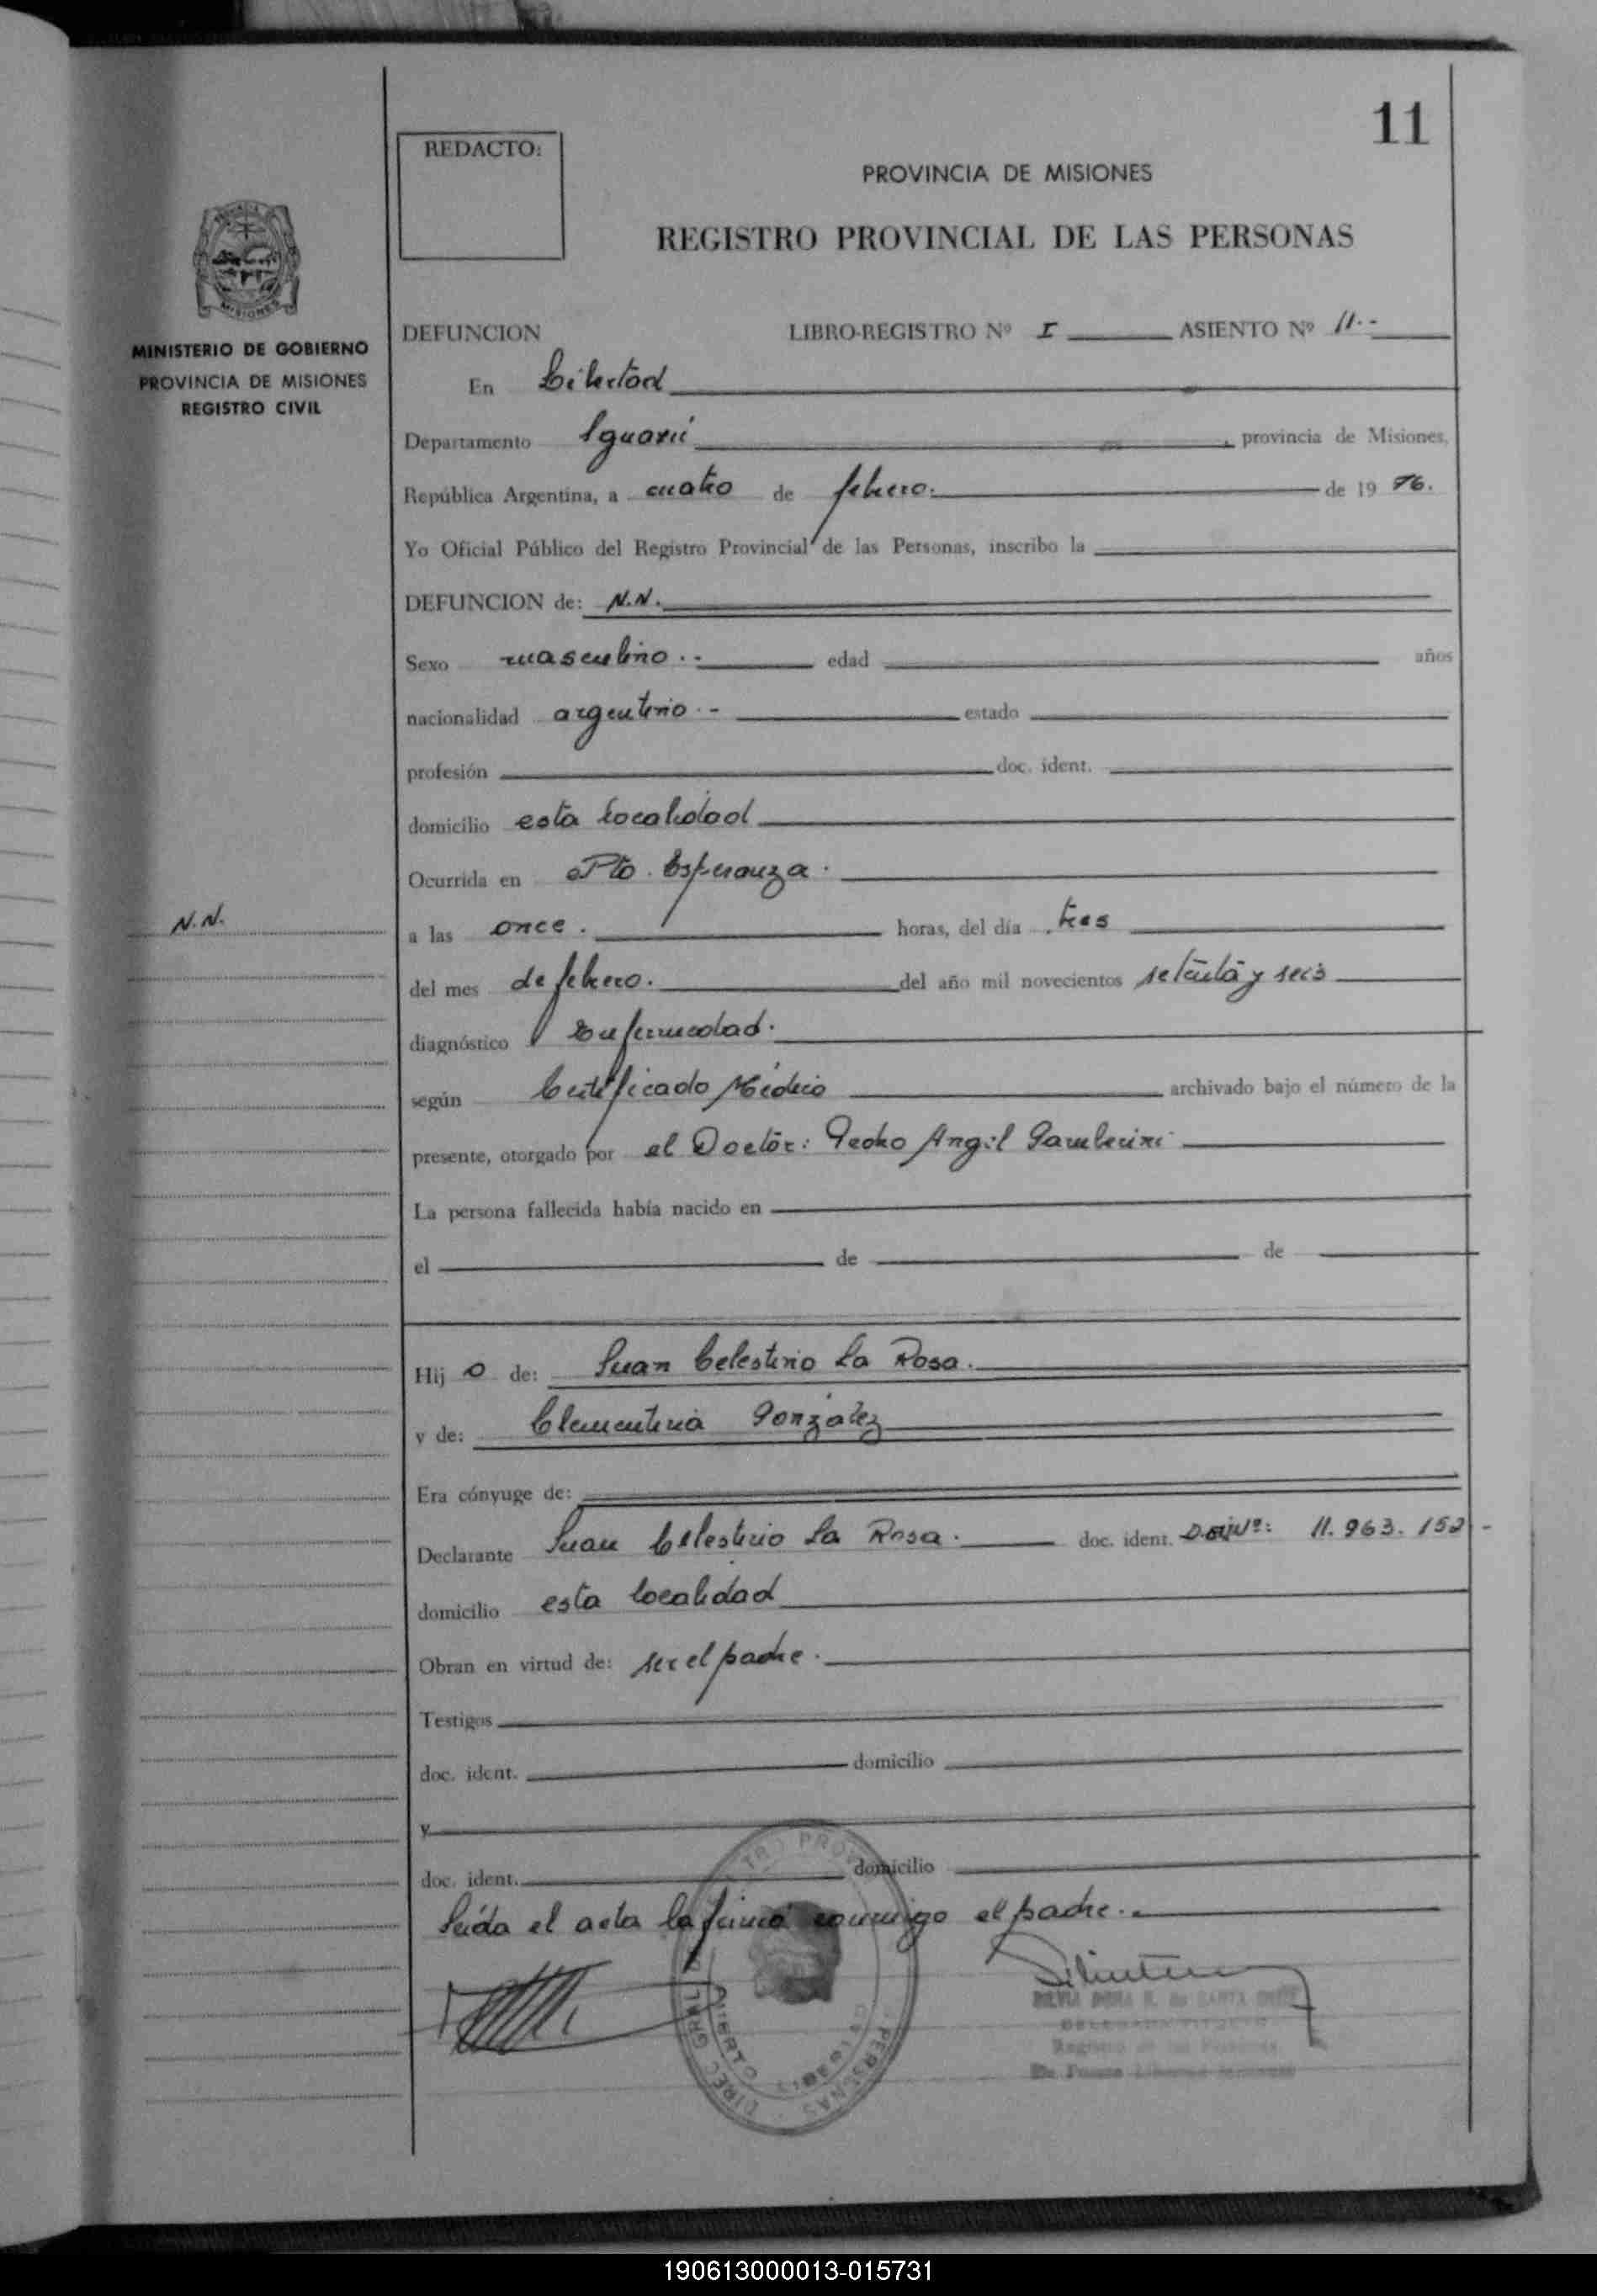 11
REDACTO:
PROVINCIA DE MISIONES
REGISTRO PROVINCIAL DE LAS PERSONAS
MISIONES
MINISTERIO DE GOBIERNO
PROVINCIA DE MISIONES
REGISTRO CIVIL
DEFUNCION LIBRO-REGISTRO Nº I ASIENTO Nº 11.-
En Libertad
Departamento Iguazú, provincia de Misiones,
República Argentina, a cuatro de febrero. de 19 76.
Yo Oficial Público del Registro Provincial de las Personas, inscribo la
DEFUNCION de: N.N.
Sexo masculino.- edad años
nacionalidad argentino.- estado
profesión doc. ident.
domicilio esta localidad
Ocurrida en Pto. Esperanza.
N.N.
a las once. horas, del día tres
del mes de febrero. del año mil novecientos setenta y seis
diagnóstico Enfermedad.
según Certificado Médico archivado bajo el número de la
presente, otorgado por el Doctor: Pedro Angel Gamberini
La persona fallecida había nacido en
el de de
Hij o de: Juan Celestino La Rosa.
y de: Clementina González
Era cónyuge de:
Declarante Juan Celestino La Rosa. doc. ident. 11.963.152-
domicilio esta localidad
Obran en virtud de: ser el padre.
Testigos
doc. ident. domicilio
y
doc. ident. domicilio
Leída el acta la firmó conmigo el padre.-
DIREC. GRAL. PERSONAS
190613000013-015731